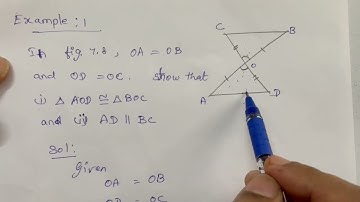 Example : 1
In fig 7.8, OA = OB
and OD = OC. show that
(i) △ AOD ≅ △ BOC
and (ii) AD || BC
Sol:
Given
OA = OB
OD = OC
C
B
O
A
D